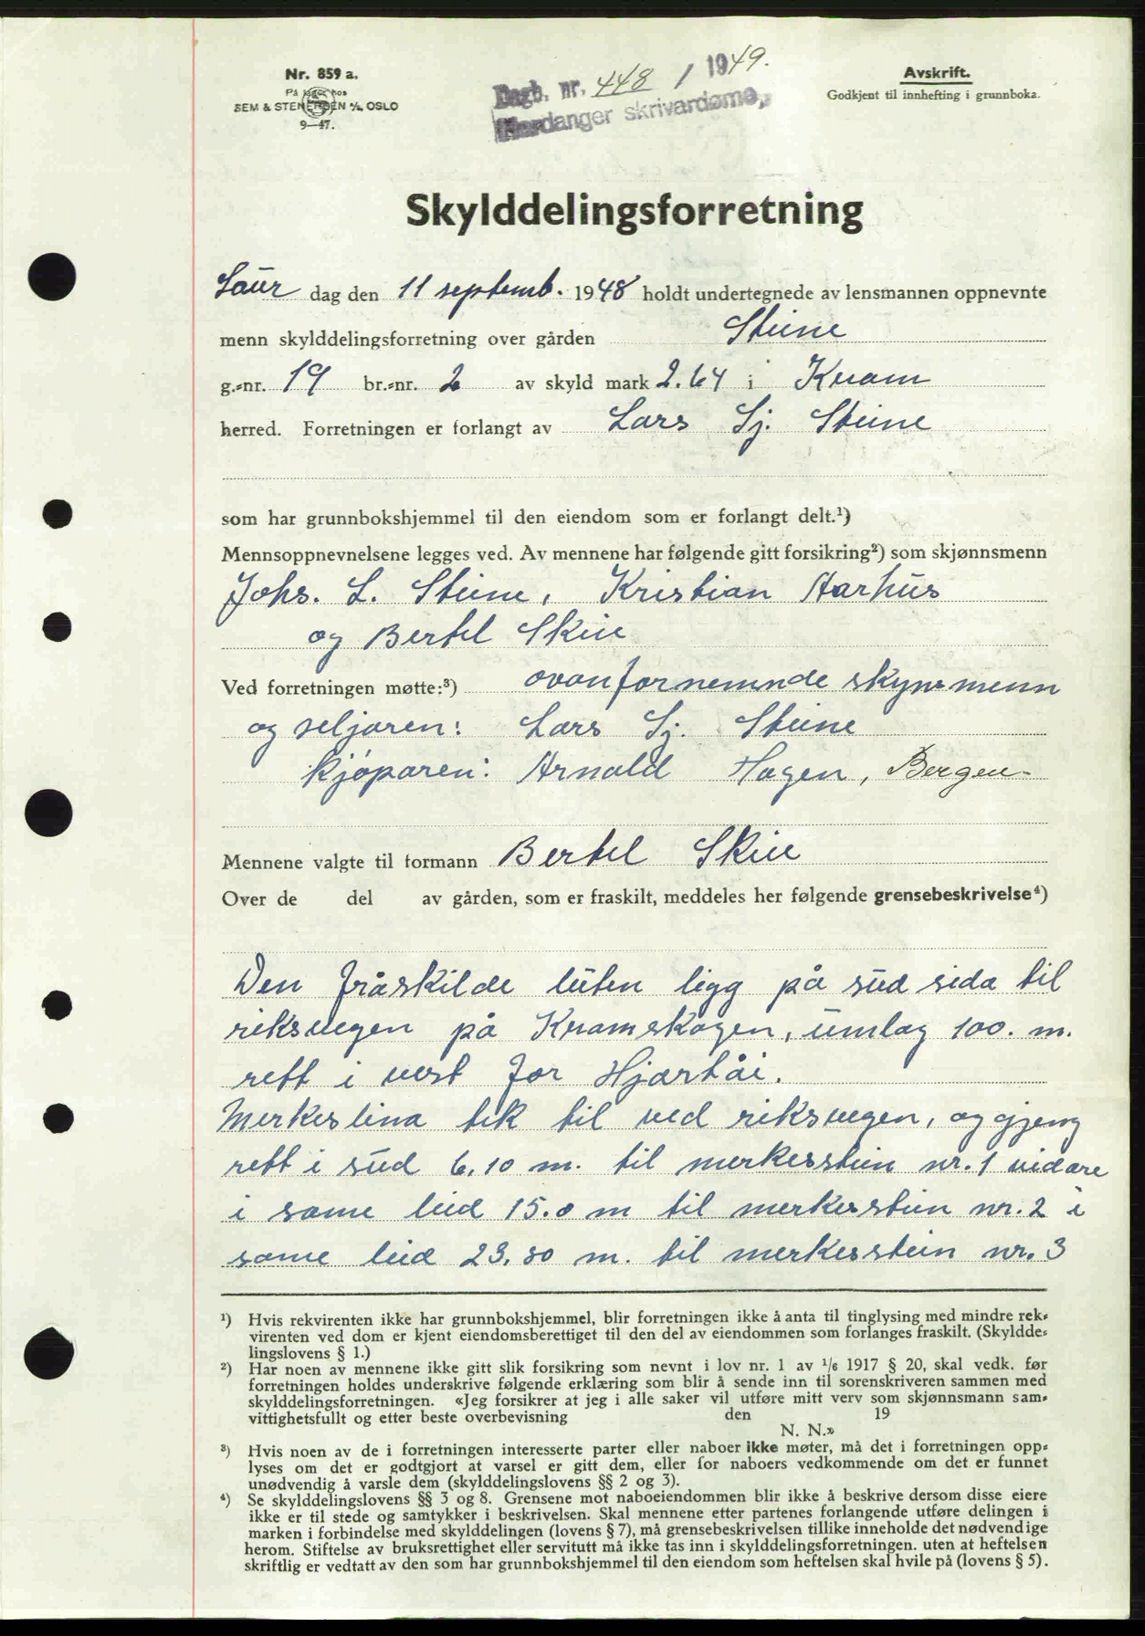 Nr. 859 a.
På lager hos
SEM & STENERSEN A/S, OSLO
9—47.
Dagb. nr. 448 / 1949.
Hardanger skrivardøme,
Avskrift.
Godkjent til innhefting i grunnboka.
Skylddelingsforretning
Laur dag den 11 septemb. 1948 holdt undertegnede av lensmannen oppnevnte
menn skylddelingsforretning over gården Steine
g.-nr. 19 br.-nr. 2 av skyld mark 2.64 i Kvam
herred. Forretningen er forlangt av Lars Sj. Steine
som har grunnbokshjemmel til den eiendom som er forlangt delt.¹)
Mennsoppnevnelsene legges ved. Av mennene har følgende gitt forsikring²) som skjønnsmenn
Johs. L. Steine, Kristian Aarhus
og Bertel Skeie
Ved forretningen møtte:³) ovanfornemnde skynsmenn
og seljaren: Lars Sj. Steine
kjøparen: Arnold Hagen, Bergen-
Mennene valgte til formann Bertel Skeie
Over de del av gården, som er fraskilt, meddeles her følgende grensebeskrivelse⁴)
Den fråskilde luten ligg på sud sida til
riksvegen på Kvamskogen, umlag 100. m.
rett i vest for Hjartåi.
Merkeslina tek til ved riksvegen, og gjeng
rett i sud 6,10 m. til merkesstein nr. 1 vidare
i same leid 15.0 m til merkesstein nr. 2 i
same leid 23,80 m. til merkesstein nr. 3
¹) Hvis rekvirenten ikke har grunnbokshjemmel, blir forretningen ikke å anta til tinglysing med mindre rek-
virenten ved dom er kjent eiendomsberettiget til den del av eiendommen som forlanges fraskilt. (Skyldde-
lingslovens § 1.)
²) Har noen av mennene ikke gitt slik forsikring som nevnt i lov nr. 1 av ¹/₆ 1917 § 20, skal vedk. før
forretningen holdes underskrive følgende erklæring som blir å sende inn til sorenskriveren sammen med
skylddelingsforretningen. «Jeg forsikrer at jeg i alle saker vil utføre mitt verv som skjønnsmann sam-
vittighetsfullt og etter beste overbevisning den 19
N. N.»
³) Hvis noen av de i forretningen interesserte parter eller naboer ikke møter, må det i forretningen opp-
lyses om det er godtgjort at varsel er gitt dem, eller for naboers vedkommende om det er funnet
unødvendig å varsle dem (skylddelingslovens §§ 2 og 3).
⁴) Se skylddelingslovens §§ 3 og 8. Grensene mot naboeiendommen blir ikke å beskrive dersom disse eiere
ikke er til stede og samtykker i beskrivelsen. Skal mennene etter partenes forlangende utføre delingen i
marken i forbindelse med skylddelingen (lovens § 7), må grensebeskrivelsen tillike inneholde det nødvendige
herom. Stiftelse av bruksrettighet eller servitutt må ikke tas inn i skylddelingsforretningen. uten at heftelsen
skriftlig er vedtatt av den som har grunnbokshjemmel til den eiendom som heftelsen skal hvile på (lovens § 5).